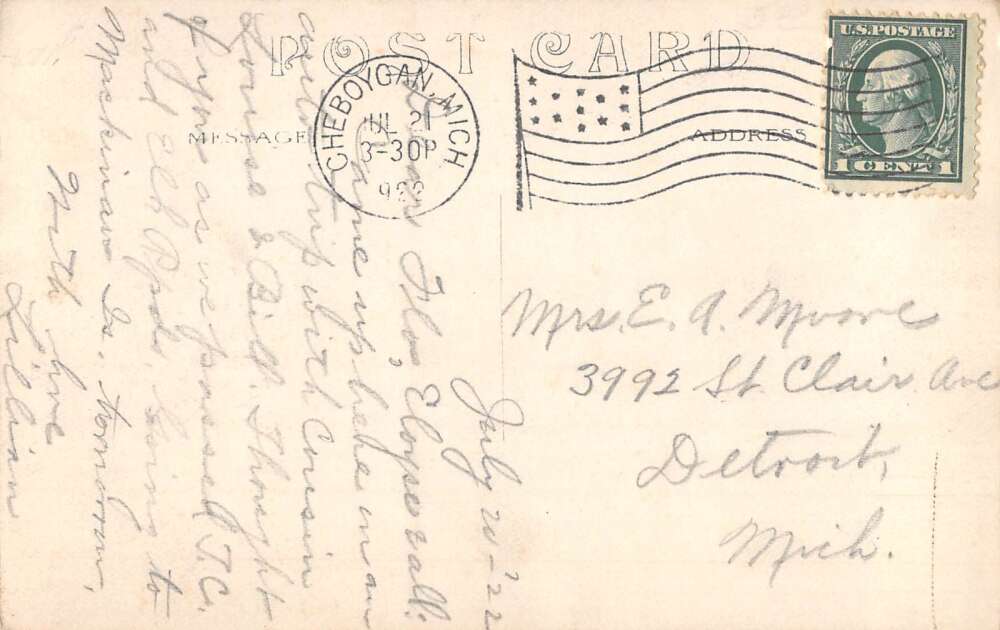 POST CARD
MESSAGE
ADDRESS
U.S. POSTAGE
1 CENT 1
CHEBOYGAN, MICH
JUL 21
3-30P
1922
July 20-'22
Dear Flos, Eloyse & all:
Came up here in an
auto trip with Cousin
Louise & Bill. Thought
of you as we passed T.C.
and Elk Rpds. Going to
Mackinaw Is. tomorrow.
With love
Lillian
Mrs. E. A. Moore
3992 St. Clair Ave
Detroit,
Mich.